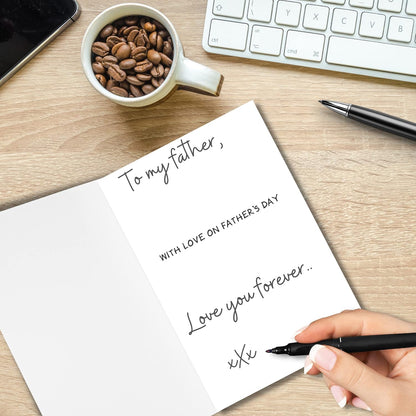 To my father,
WITH LOVE ON FATHER'S DAY
Love you forever..
xXx